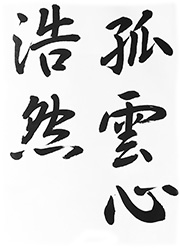 孤雲心
浩然